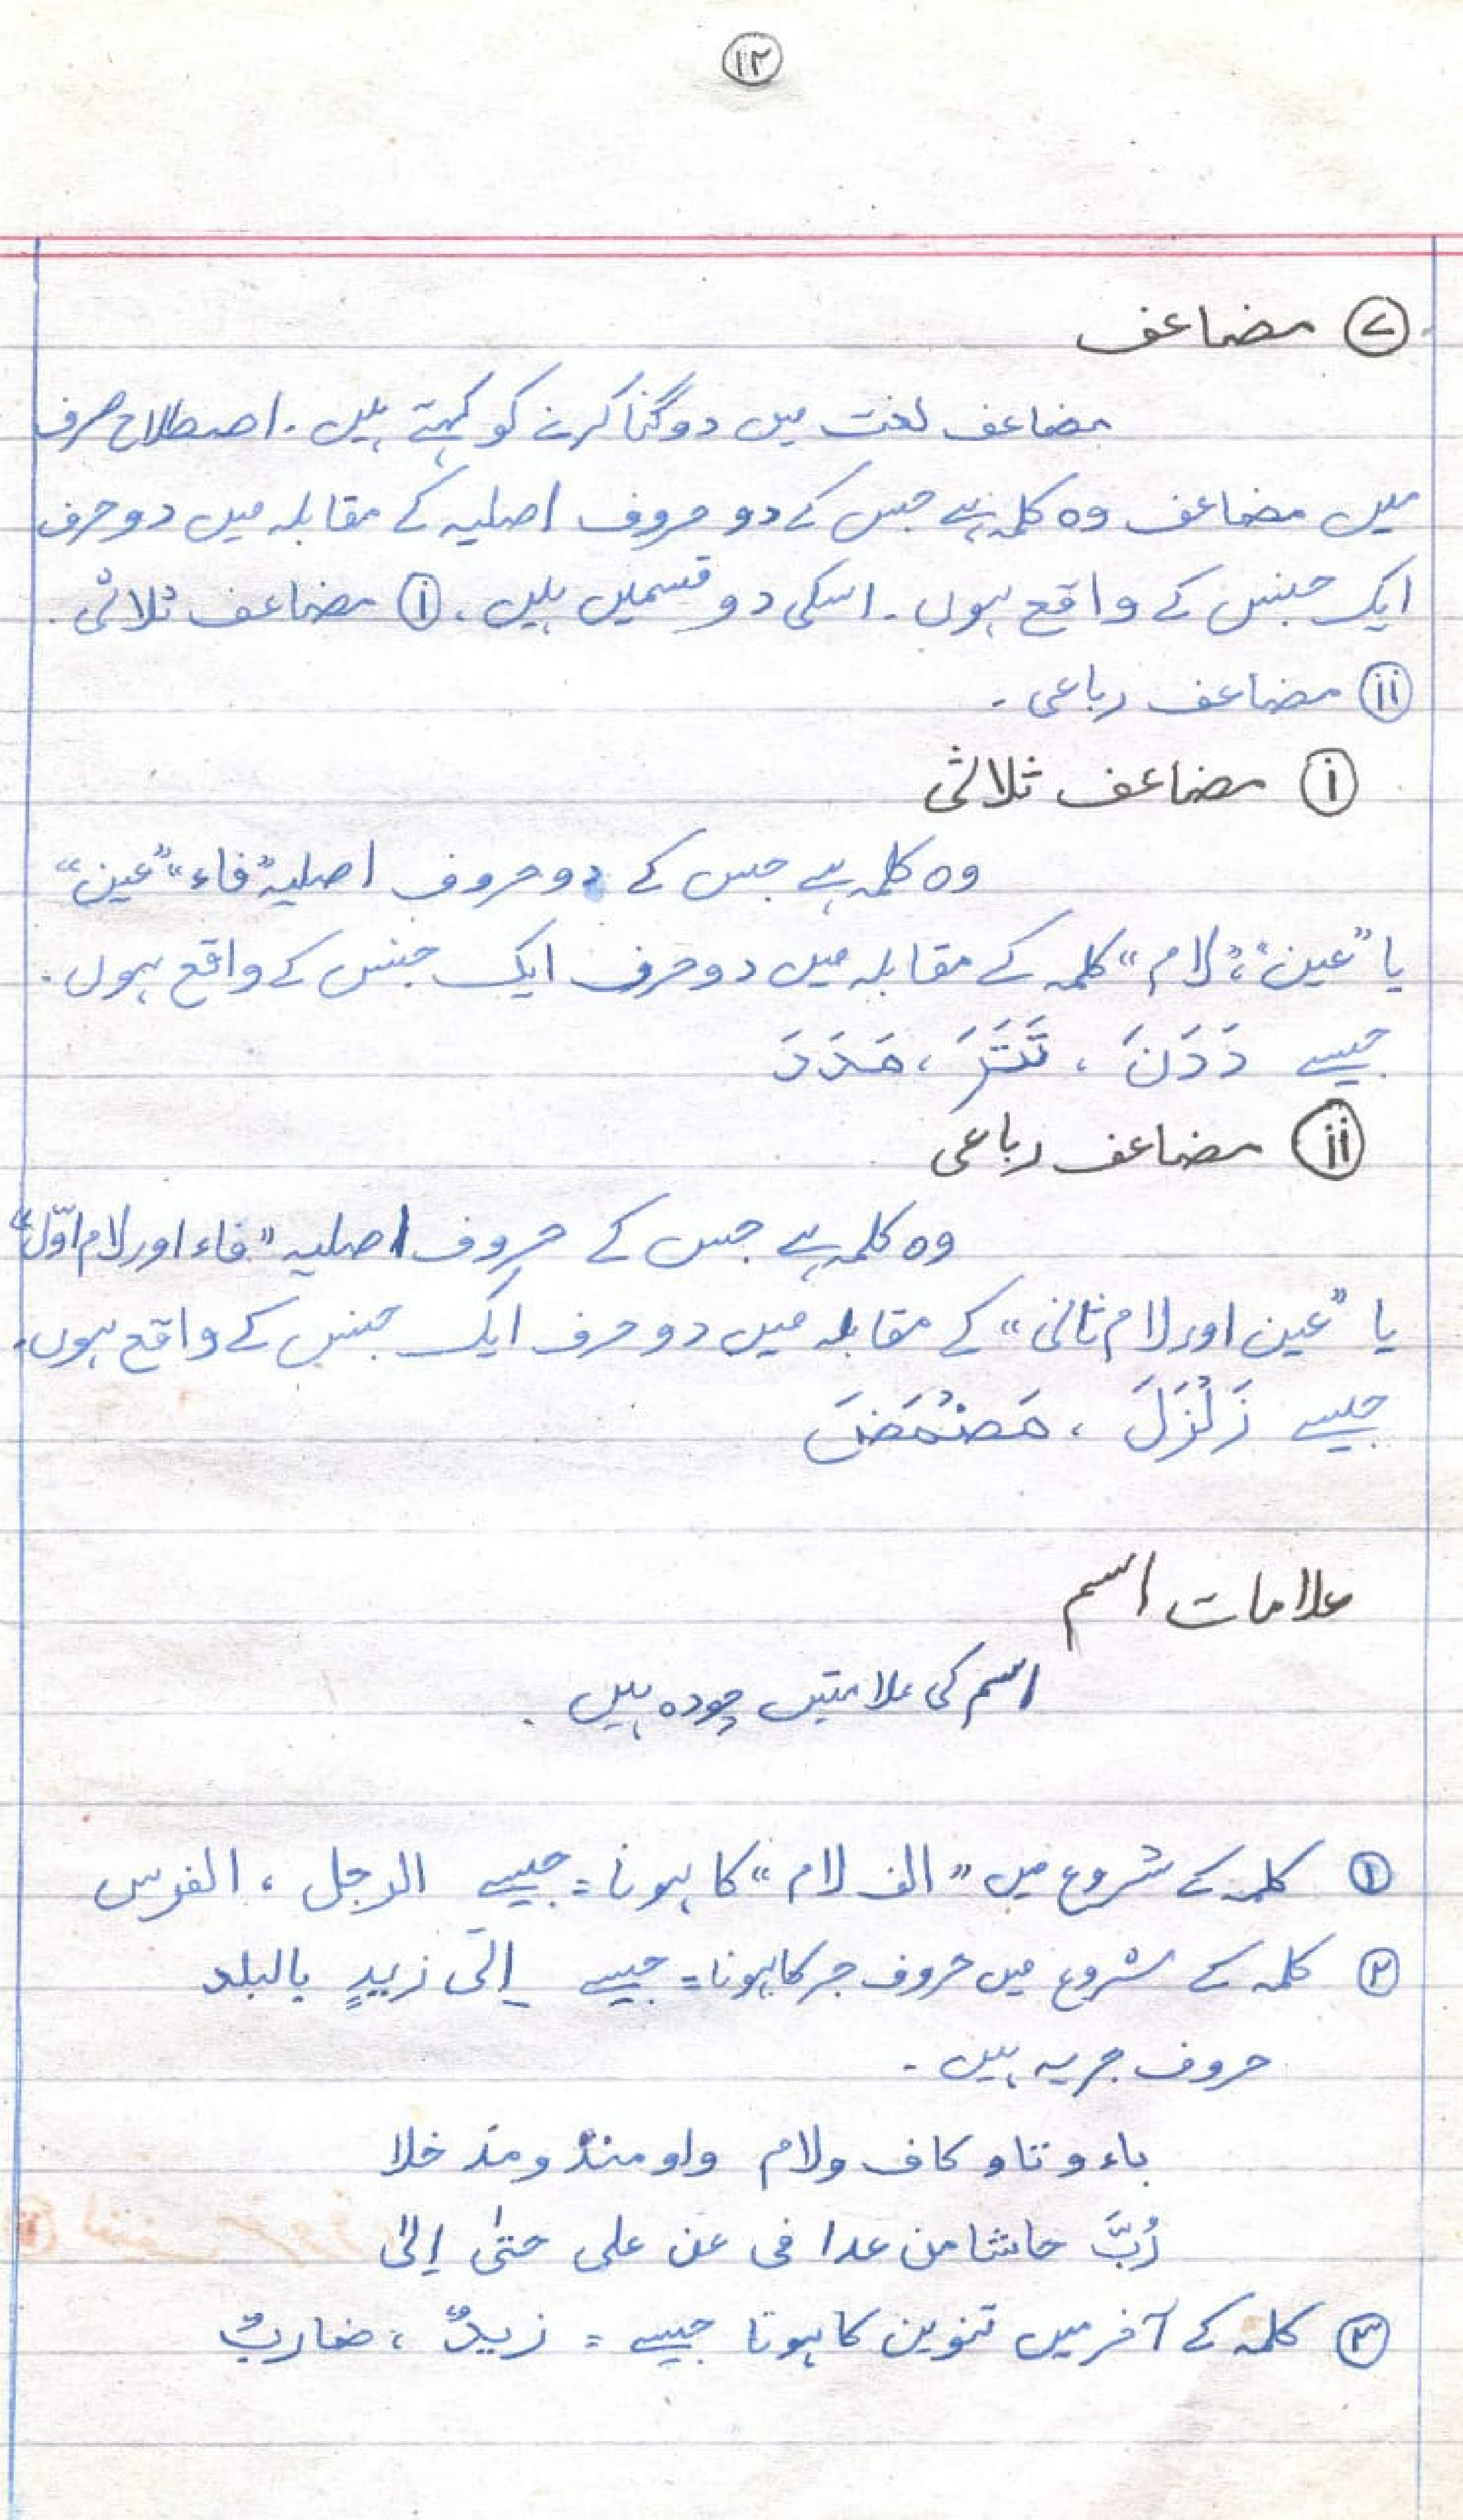 ۱۲
۷ مضاعف
مضاعف لغت میں دوگنا کرنے کو کہتے ہیں۔ اصطلاح صرف
میں مضاعف وہ کلمہ ہے جس کے دو حروف اصلیہ کے مقابلہ میں دو حرف
ایک جنس کے واقع ہوں۔ اسکی دو قسمیں ہیں، (i) مضاعف ثلاثی۔
(ii) مضاعف رباعی۔
(i) مضاعف ثلاثی
وہ کلمہ ہے جس کے دو حروف اصلیہ "فاء" "عین"
یا "عین"، "لام" کلمہ کے مقابلہ میں دو حرف ایک جنس کے واقع ہوں۔
جیسے دَدَنَ ، تَتَرَ ، مَدَدَ
(ii) مضاعف رباعی
وہ کلمہ ہے جس کے حروف اصلیہ "فاء اور لام اوّل"
یا "عین اور لام ثانی" کے مقابلہ میں دو حرف ایک جنس کے واقع ہوں۔
جیسے زَلْزَلَ ، مَضْمَضَ
علامات اسم
اسم کی علامتیں چودہ ہیں۔
۱ کلمہ کے شروع میں "الف لام" کا ہونا = جیسے الرجل ، الفرس
۲ کلمہ کے شروع میں حروف جر کا ہونا = جیسے إلى زیدٍ بالبلد
حروف جر یہ ہیں۔
باء و تاو کاف ولام واو منذ و مذ خلا
رُبَّ حاشا من عدا فی عن علی حتیٰ إلیٰ
۳ کلمہ کے آخر میں تنوین کا ہونا جیسے = زیدٌ ، ضاربٌ